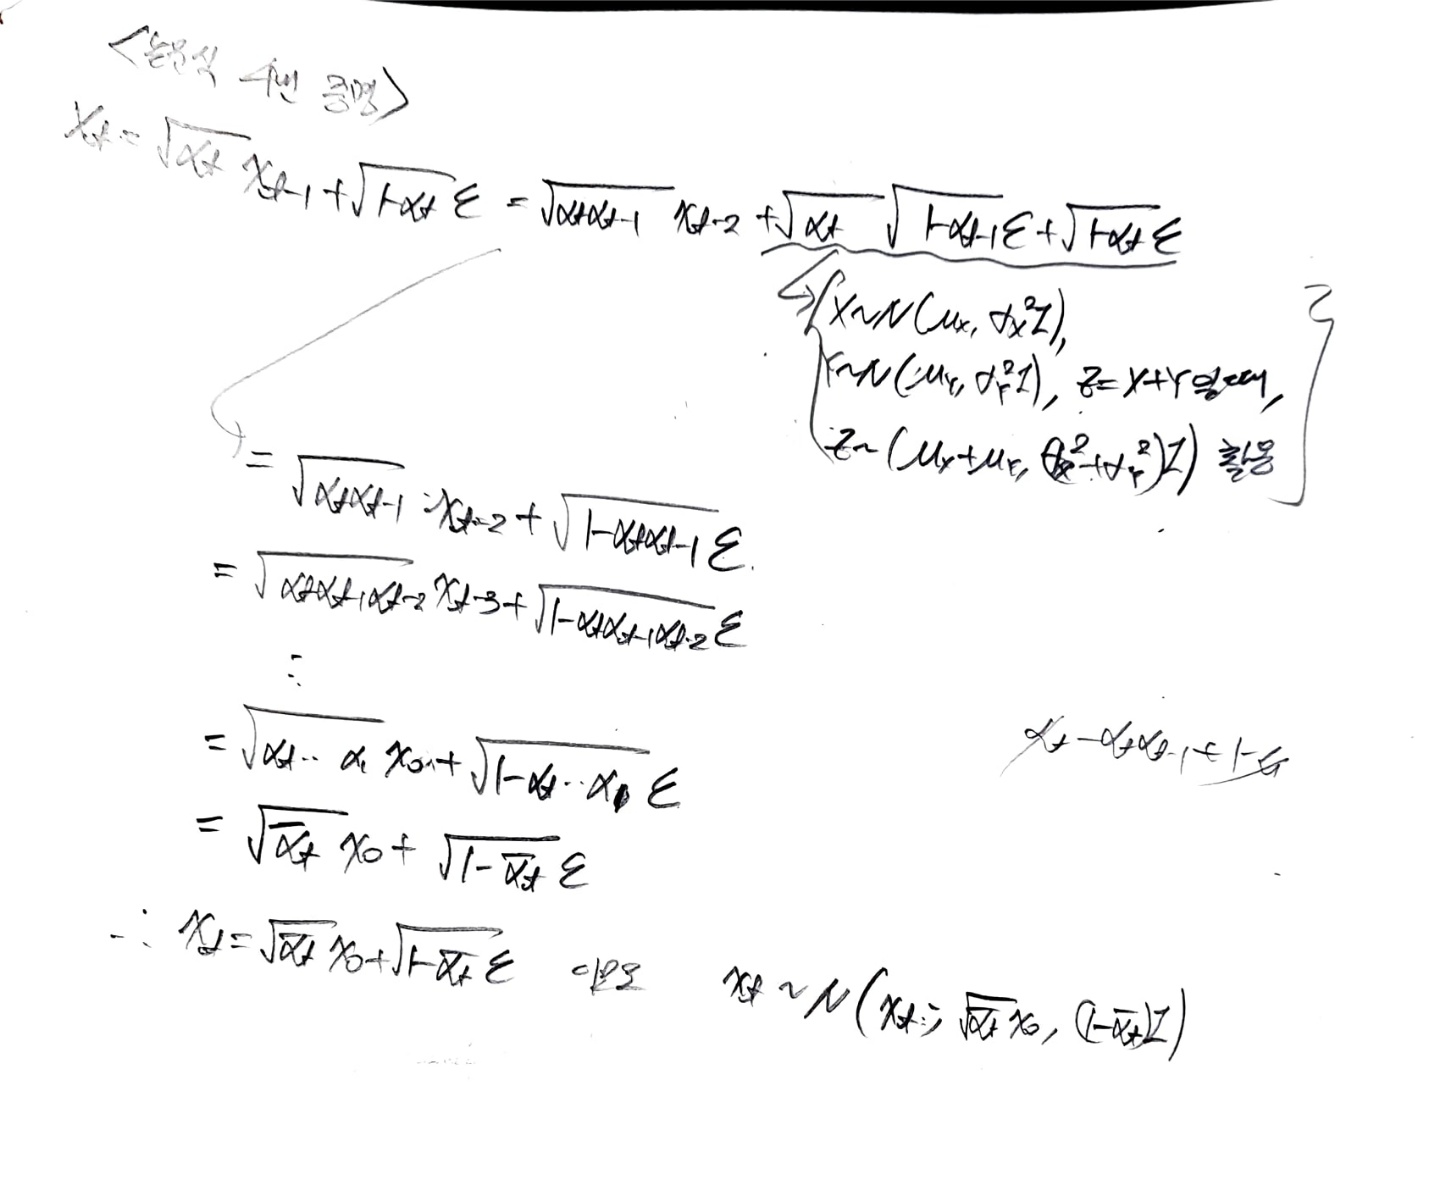 <논문식 4번 증명>
Xt = √αt Xt-1 + √1-αt ε = √αtαt-1 Xt-2 + √αt √1-αt-1 ε + √1-αt ε
X~N(μx, σx²I),
Y~N(μY, σY²I), Z=X+Y일때,
Z~(μx+μY, (σx²+σY²)I) 활용
= √αtαt-1 Xt-2 + √1-αtαt-1 ε
= √αtαt-1αt-2 Xt-3 + √1-αtαt-1αt-2 ε
⋮
= √αt·· α1 X0 + √1-αt·· α1 ε
αt-αtαt-1+1-α
= √ᾱt X0 + √1-ᾱt ε
∴ Xt = √ᾱt X0 + √1-ᾱt ε 이므로 Xt ~ N(Xt; √ᾱt X0, (1-ᾱt)I)